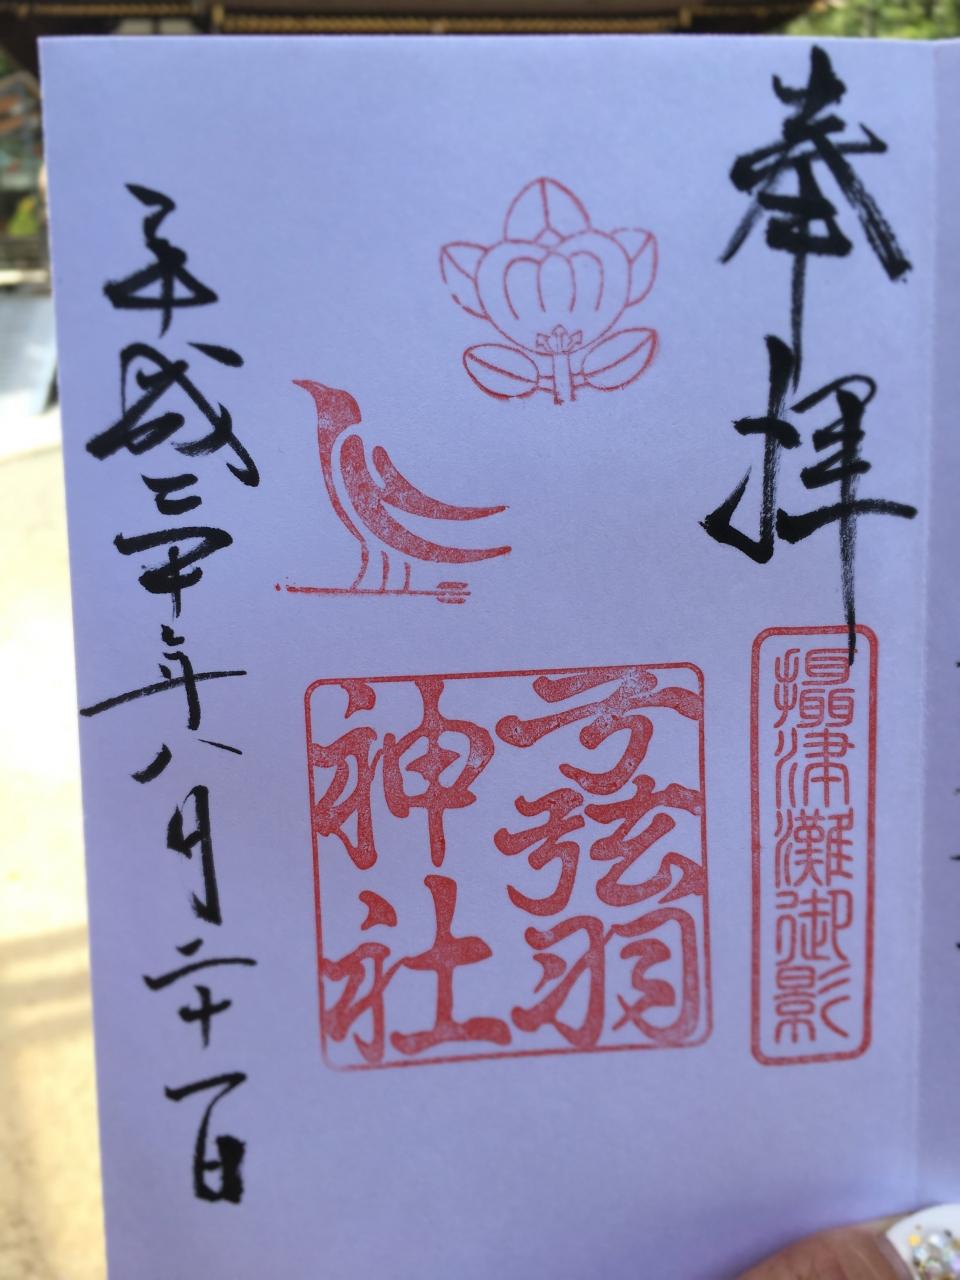 奉拝
攝津灘御影
弓弦羽
神社
平成三十年八月二十一日